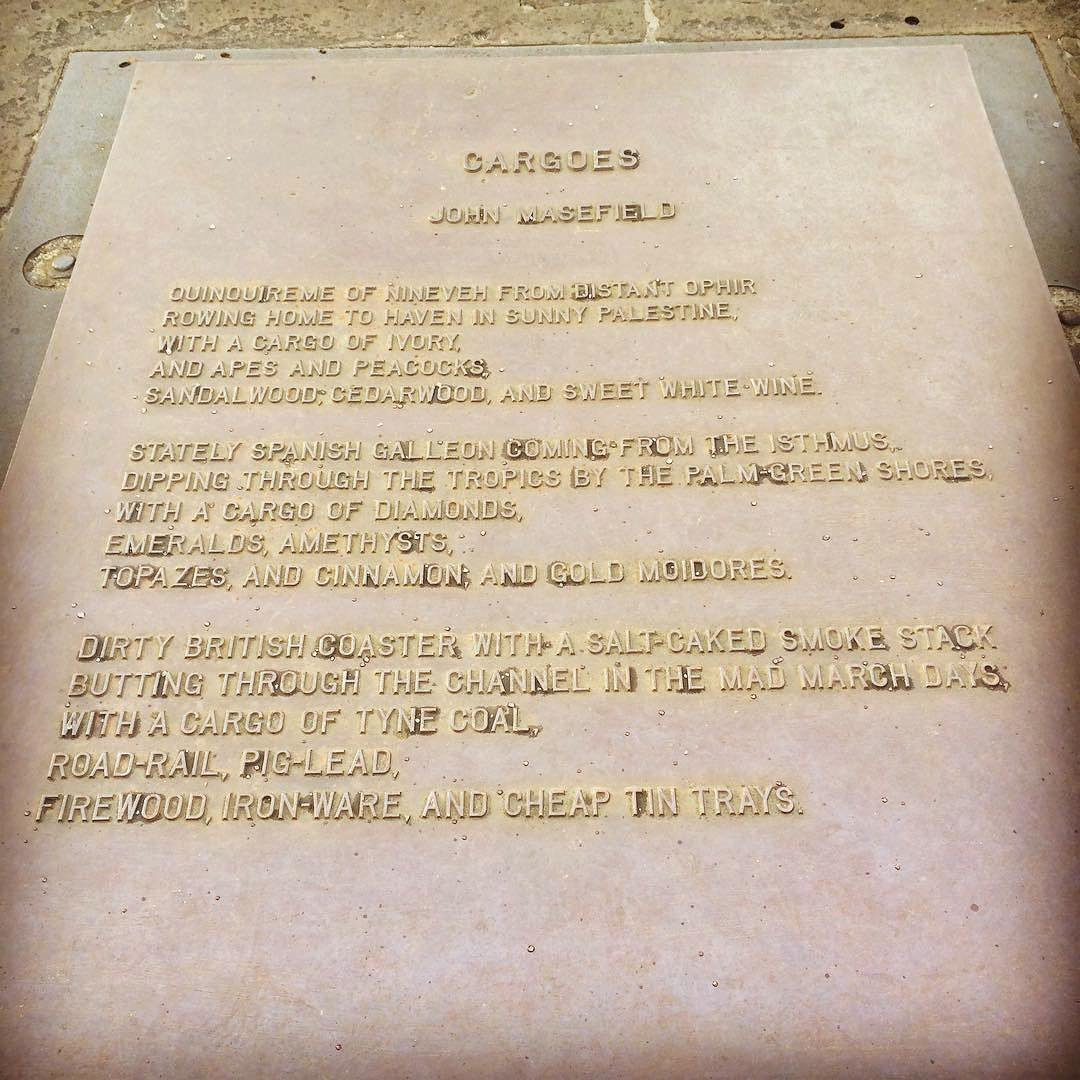 CARGOES
JOHN MASEFIELD
QUINQUIREME OF NINEVEH FROM DISTANT OPHIR
ROWING HOME TO HAVEN IN SUNNY PALESTINE,
WITH A CARGO OF IVORY,
AND APES AND PEACOCKS,
SANDALWOOD, CEDARWOOD, AND SWEET WHITE WINE.
STATELY SPANISH GALLEON COMING FROM THE ISTHMUS,
DIPPING THROUGH THE TROPICS BY THE PALM-GREEN SHORES,
WITH A CARGO OF DIAMONDS,
EMERALDS, AMETHYSTS,
TOPAZES, AND CINNAMON, AND GOLD MOIDORES.
DIRTY BRITISH COASTER WITH A SALT-CAKED SMOKE STACK
BUTTING THROUGH THE CHANNEL IN THE MAD MARCH DAYS,
WITH A CARGO OF TYNE COAL,
ROAD-RAIL, PIG-LEAD,
FIREWOOD, IRON-WARE, AND CHEAP TIN TRAYS.